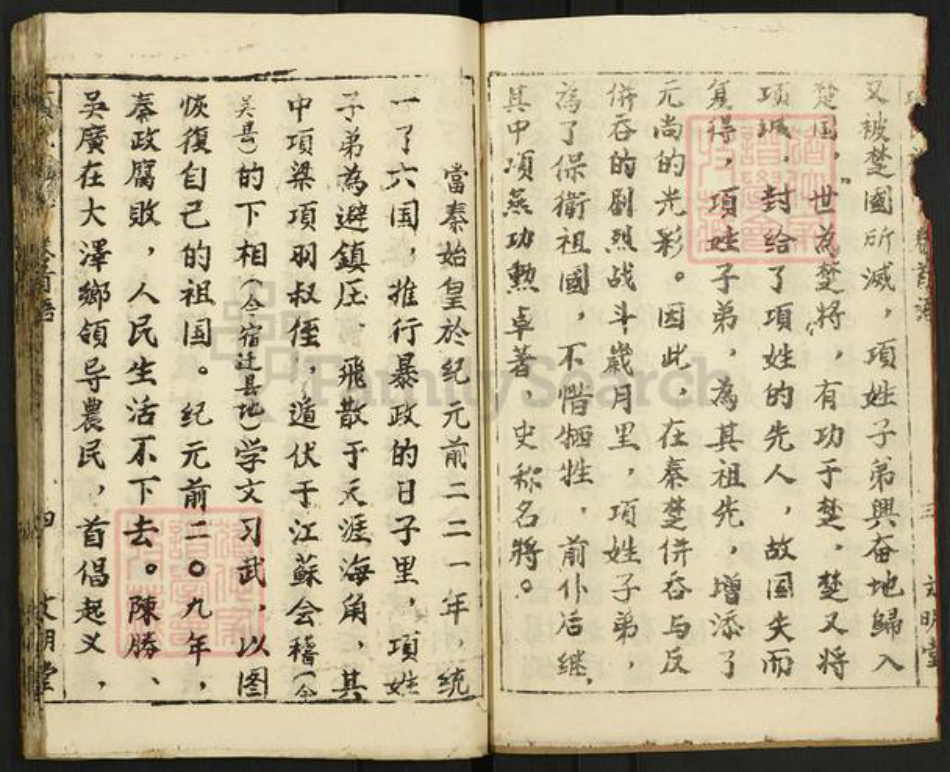 卷首语
三
文明堂
又被楚國所滅，項姓子弟興奋地歸入
楚国，世為楚将，有功于楚，楚又将
項城，封给了項姓的先人，故国失而
复得，項姓子弟，為其祖先，增添了
元尚的光彩。因此，在秦楚併吞与反
併吞的剧烈战斗歲月里，項姓子弟，
為了保衛祖國，不惜牺牲，前仆后继，
其中項燕功勲卓著，史称名将。
當秦始皇於纪元前二二一年，统
一了六国，推行暴政的日子里，項姓
子弟為避鎮压，飛散于天涯海角，其
中項梁項羽叔侄，遁伏于江蘇会稽（今
吴县）的下相（今宿迁县地）学文习武，以图
恢復自己的祖国。纪元前二〇九年，
秦政腐敗，人民生活不下去。陳勝、
吳廣在大澤鄉領导農民，首倡起义，
卷首语
四
文明堂
FamilySearch